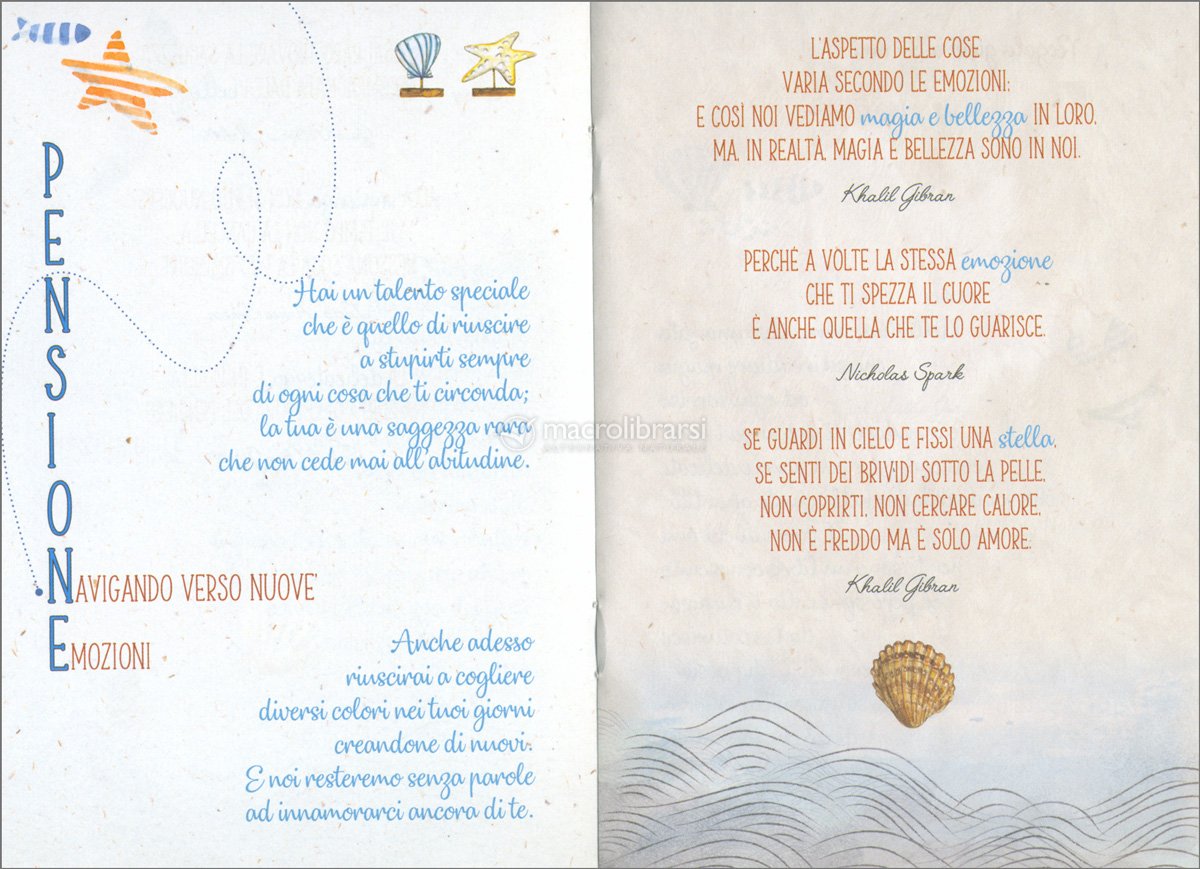 PENSIONE
NAVIGANDO VERSO NUOVE'
EMOZIONI
Hai un talento speciale
che è quello di riuscire
a stupirti sempre
di ogni cosa che ti circonda;
la tua è una saggezza rara
che non cede mai all'abitudine.
Anche adesso
riuscirai a cogliere
diversi colori nei tuoi giorni
creandone di nuovi.
E noi resteremo senza parole
ad innamorarci ancora di te.
L'ASPETTO DELLE COSE
VARIA SECONDO LE EMOZIONI:
E COSÌ NOI VEDIAMO magia e bellezza IN LORO.
MA, IN REALTÀ, MAGIA E BELLEZZA SONO IN NOI.
Khalil Gibran
PERCHÉ A VOLTE LA STESSA emozione
CHE TI SPEZZA IL CUORE
È ANCHE QUELLA CHE TE LO GUARISCE.
Nicholas Spark
SE GUARDI IN CIELO E FISSI UNA stella,
SE SENTI DEI BRIVIDI SOTTO LA PELLE,
NON COPRIRTI, NON CERCARE CALORE,
NON È FREDDO MA È SOLO AMORE.
Khalil Gibran
macrolibrarsi